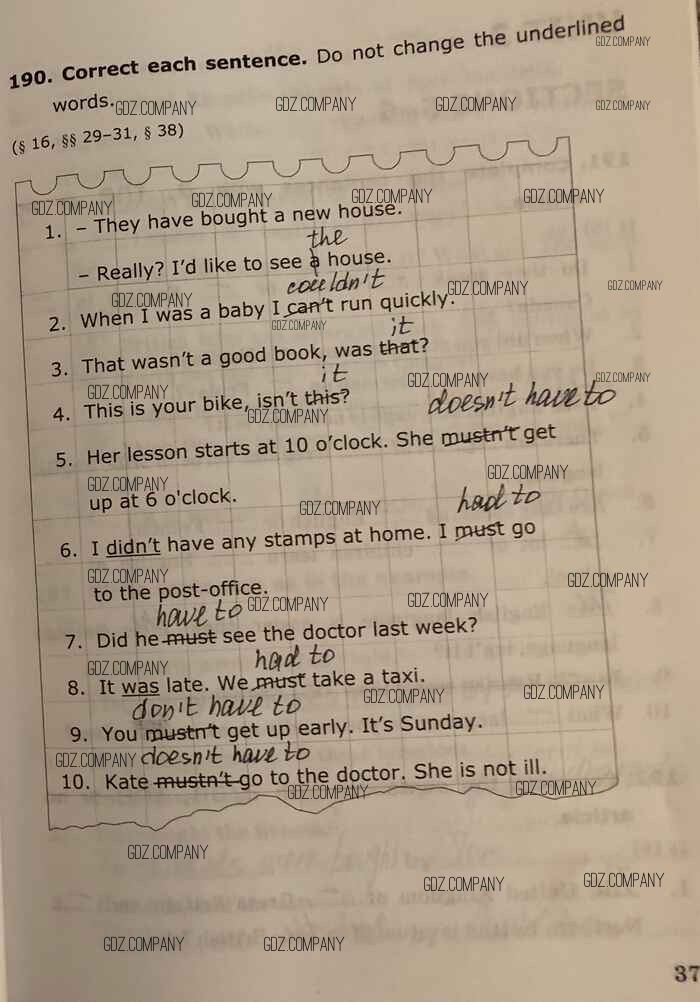 190. Correct each sentence. Do not change the underlined
GDZ.COMPANY
words.
GDZ.COMPANY GDZ.COMPANY GDZ.COMPANY GDZ.COMPANY
(§ 16, §§ 29–31, § 38)
GDZ.COMPANY GDZ.COMPANY GDZ.COMPANY GDZ.COMPANY
1. – They have bought a new house.
the
– Really? I'd like to see a house.
couldn't
GDZ.COMPANY GDZ.COMPANY GDZ.COMPANY
2. When I was a baby I can't run quickly.
GDZ.COMPANY
it
3. That wasn't a good book, was that?
it
GDZ.COMPANY GDZ.COMPANY GDZ.COMPANY
4. This is your bike, isn't this?
GDZ.COMPANY
doesn't have to
5. Her lesson starts at 10 o'clock. She mustn't get
GDZ.COMPANY GDZ.COMPANY
up at 6 o'clock.
GDZ.COMPANY
had to
6. I didn't have any stamps at home. I must go
GDZ.COMPANY GDZ.COMPANY
to the post-office.
have to
GDZ.COMPANY GDZ.COMPANY
7. Did he must see the doctor last week?
had to
GDZ.COMPANY
8. It was late. We must take a taxi.
GDZ.COMPANY GDZ.COMPANY
don't have to
9. You mustn't get up early. It's Sunday.
GDZ.COMPANY
doesn't have to
10. Kate mustn't go to the doctor. She is not ill.
GDZ.COMPANY GDZ.COMPANY
GDZ.COMPANY
GDZ.COMPANY GDZ.COMPANY
GDZ.COMPANY GDZ.COMPANY
37